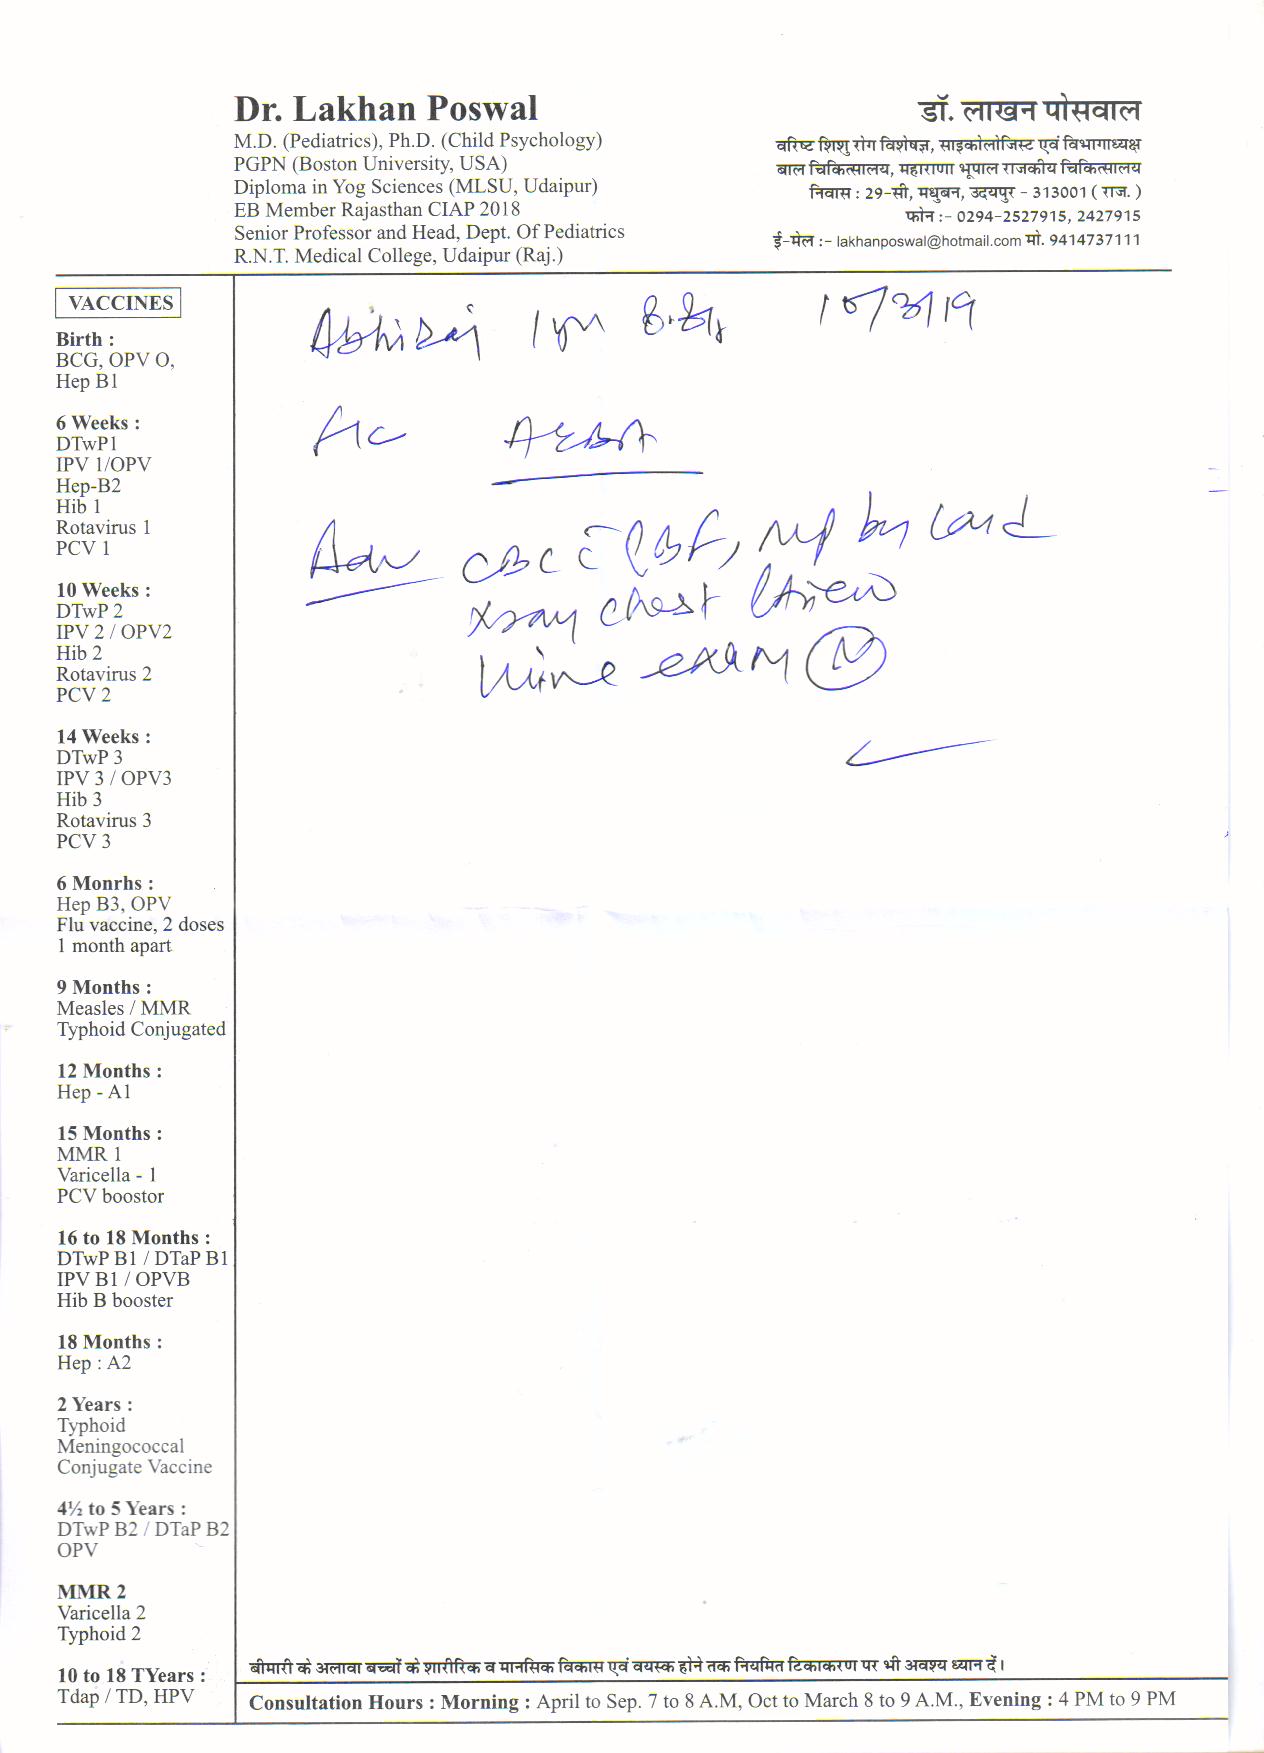 Dr. Lakhan Poswal
M.D. (Pediatrics), Ph.D. (Child Psychology)
PGPN (Boston University, USA)
Diploma in Yog Sciences (MLSU, Udaipur)
EB Member Rajasthan CIAP 2018
Senior Professor and Head, Dept. Of Pediatrics
R.N.T. Medical College, Udaipur (Raj.)
डॉ. लाखन पोसवाल
वरिष्ट शिशु रोग विशेषज्ञ, साइकोलोजिस्ट एवं विभागाध्यक्ष
बाल चिकित्सालय, महाराणा भूपाल राजकीय चिकित्सालय
निवास : 29-सी, मधुबन, उदयपुर - 313001 ( राज. )
फोन :- 0294-2527915, 2427915
ई-मेल :- lakhanposwal@hotmail.com मो. 9414737111
VACCINES
Birth :
BCG, OPV O,
Hep B1
6 Weeks :
DTwP1
IPV 1/OPV
Hep-B2
Hib 1
Rotavirus 1
PCV 1
10 Weeks :
DTwP 2
IPV 2 / OPV2
Hib 2
Rotavirus 2
PCV 2
14 Weeks :
DTwP 3
IPV 3 / OPV3
Hib 3
Rotavirus 3
PCV 3
6 Monrhs :
Hep B3, OPV
Flu vaccine, 2 doses
1 month apart
9 Months :
Measles / MMR
Typhoid Conjugated
12 Months :
Hep - A1
15 Months :
MMR 1
Varicella - 1
PCV boostor
16 to 18 Months :
DTwP B1 / DTaP B1
IPV B1 / OPVB
Hib B booster
18 Months :
Hep : A2
2 Years :
Typhoid
Meningococcal
Conjugate Vaccine
4½ to 5 Years :
DTwP B2 / DTaP B2
OPV
MMR 2
Varicella 2
Typhoid 2
10 to 18 TYears :
Tdap / TD, HPV
Abhiraj 10/3/19
Adv CBC c̄ PBF, MP by Card
Xray chest
Urine exam (N)
बीमारी के अलावा बच्चों के शारीरिक व मानसिक विकास एवं वयस्क होने तक नियमित टिकाकरण पर भी अवश्य ध्यान दें।
Consultation Hours : Morning : April to Sep. 7 to 8 A.M, Oct to March 8 to 9 A.M., Evening : 4 PM to 9 PM